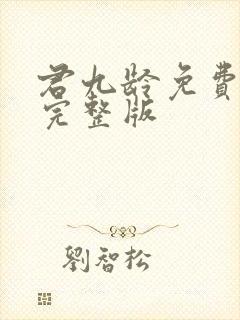 君九龄免費
完整版
劉智松